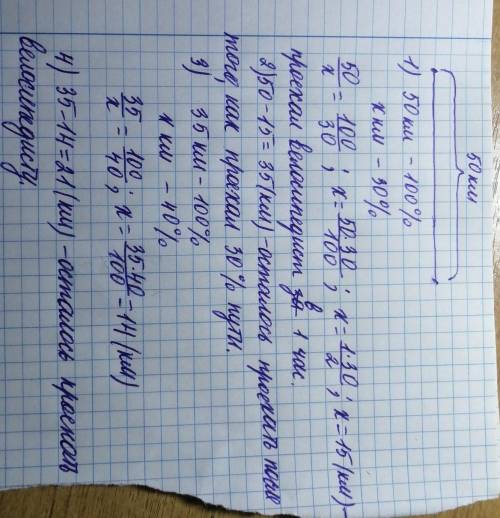 50 км
1) 50 км - 100%
x км - 30%
50/x = 100/30 ; x = 50·30/100 ; x = 1·30/2 ; x = 15 (км) -
проехал велосипедист в 1 час.
2) 50 - 15 = 35 (км) - осталось проехать после
того, как проехал 30% пути.
3) 35 км - 100%
x км - 40%
35/x = 100/40 ; x = 35·40/100 = 14 (км)
4) 35 - 14 = 21 (км) - осталось проехать
велосипедисту.